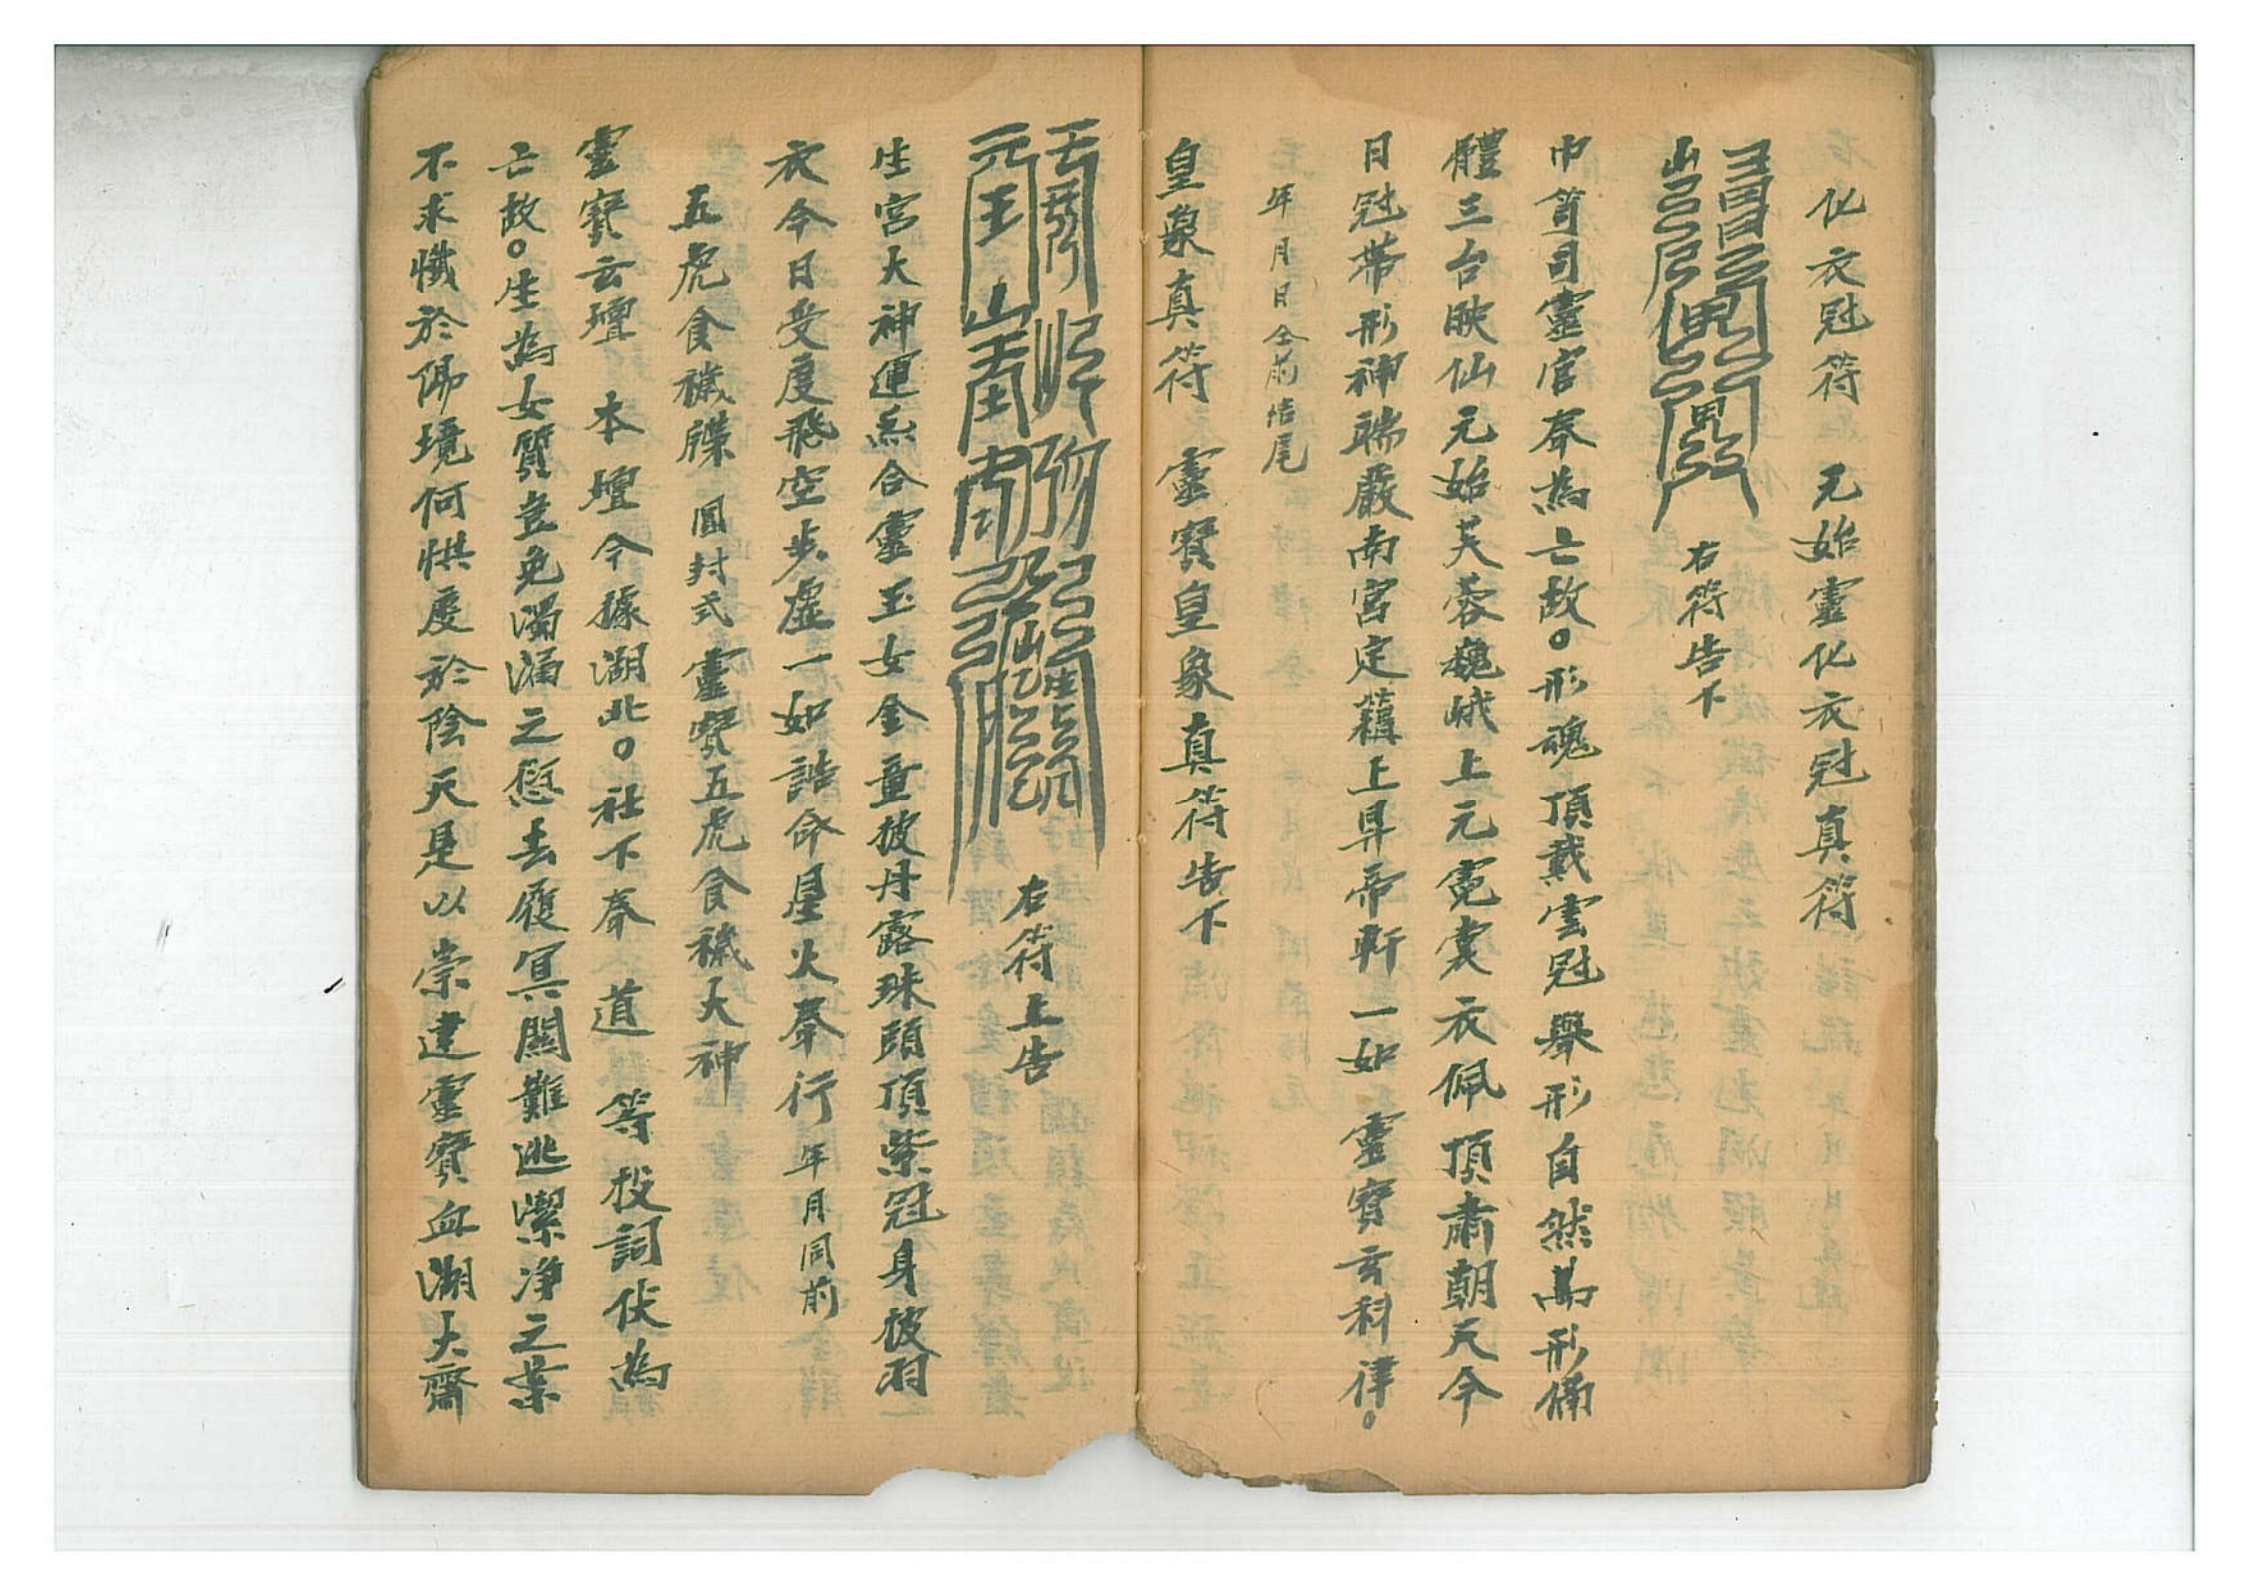 化衣冠符 元始靈化衣冠真符
右符告下
巾笥司靈官奉為亡故○形魂頂戴雲冠舉形自然萬形俻
體三台映仙元始芙蓉巍峨上元霓裳衣佩頂肅朝天今
日冠帶形神端嚴南宮定藉上昇帝軒一如 靈寶玄科律。
年月日仝前誥尾
皇象真符 靈寶皇象真符告下
右符上告
生宮大神運炁合靈玉女金童披丹露珠頭頂紫冠身披羽
衣今日受度飛空步虛一如誥命星火奉行年月同前
五虎食穢牒 圓封式 靈寶五虎食穢大神
靈寶玄壇 本壇今據湖北○社下奉 道 等投詞伏為
亡故○生為女質豈免濁漏之愆去履冥關難逃潔净之業
不求懺於陽境何惧度於陰天是以崇建靈寶血湖大齋